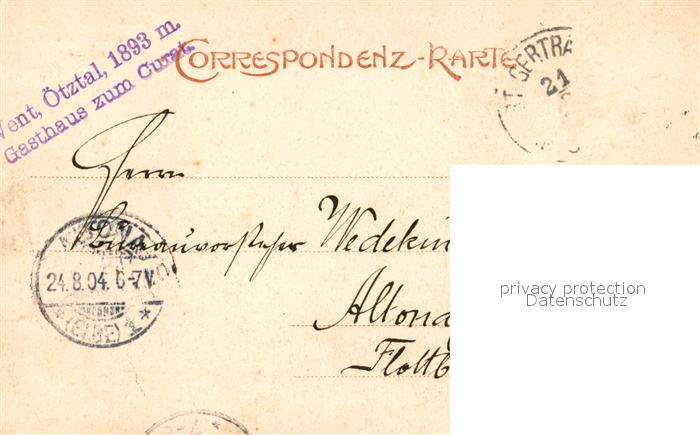 Vent, Ötztal, 1893 m.
Gasthaus zum Curat.
CORRESPONDENZ-KARTE
ST. GERTRA
21
Herrn
Bureauvorsteher Wedekin
Altona
Flottb
ALTONA
24.8.04. 6-7V.
* (ELBE) *
privacy protection
Datenschutz